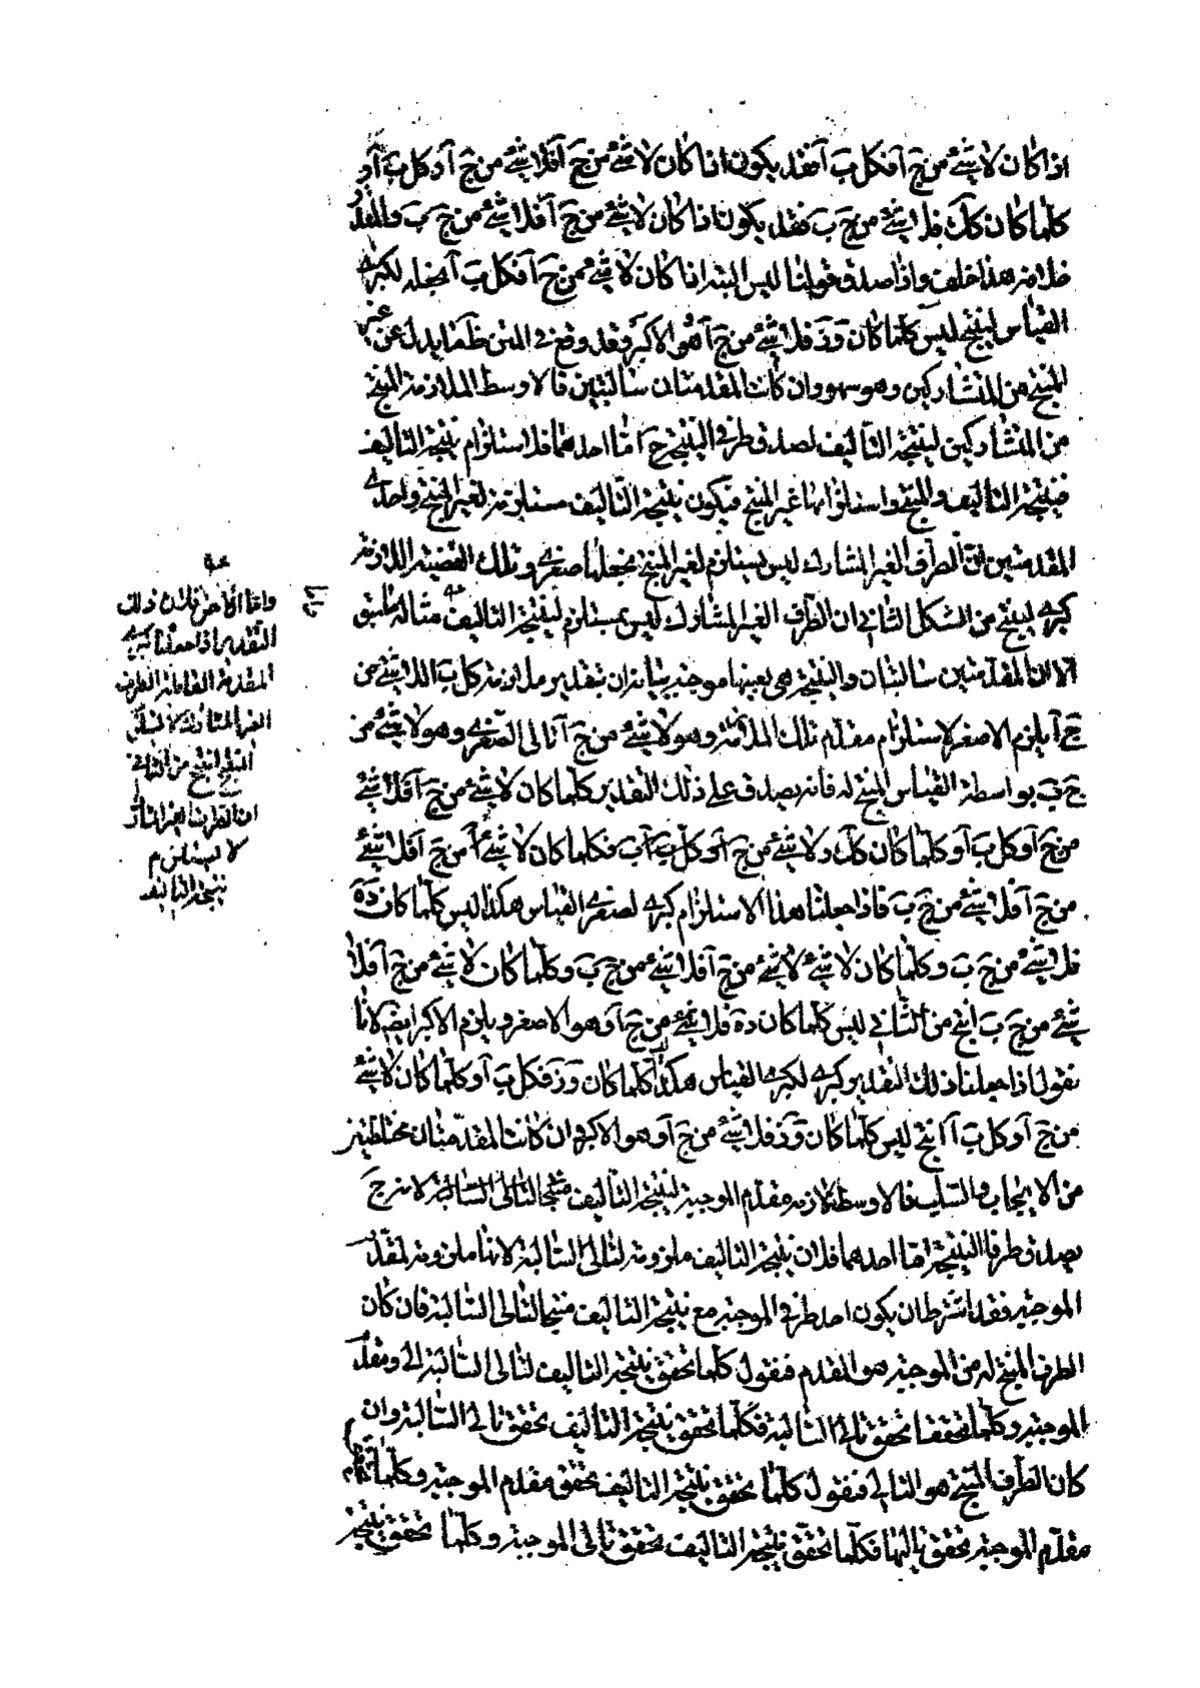 اذا كان لا شئ من ج آ فكل ب آ فقد يكون اذا كان لا شئ من ج آ فلا شئ من ج آ و كل ب آ و
كلما كان كك فلا شئ من ج ب فقد يكون اذا كان لا شئ من ج آ فلا شئ من ج ب والمقدر
خلافه هذا خلف واذا صدق قولنا ليس البتة اذا كان لا شئ من ج آ فكل ب آ نجعله لكبرى
القياس لينتج ليس كلما كان و ز فلا شئ من ج آ هو الاكبر وقد وقع في المتن ههنا بدل عن غير
المنتج من المتشاركين وهو سهو وان كانت المقدمتان سالبتين فالاوسط الملازمة المنتج
من المتشاركين لنتيجة التأليف لصدق طرفي النتيجة ح اما احدهما فلاستلزام نتيجة التأليف
فنتيجة التأليف والمنتج واستلزامها غير المنتج فيكون نتيجة التأليف مستلزمة لغير المنتج واحدى
المقدمتين ان الطرف الغير المشارك ليس يستلزم لغير المنتج نجعلها صغرى وتلك القضية اللازمة
كبرى لينتج من الشكل الثاني ان الطرف الغير المشارك ليس بمستلزم لنتيجة التأليف مثاله ما سبق
الا ان المقدمتين سالبتان والنتيجة هي بعينها موجبة بيانه ان بتقدير ملازمة كل ب آ لا شئ من
ج آ يلزم الاصغر لاستلزام مقدم تلك الملازمة وهو لا شئ من ج آ تالي الصغرى وهو لا شئ من
ج ب بواسطة القياس المنتج له فانه يصدق على ذلك التقدير كلما كان لا شئ من ج آ فلا شئ
من ج آ و كل ب آ و كلما كان كك ولا شئ من ج آ و كل ب آ فكلما كان لا شئ من ج آ فلا شئ
من ج آ فلا شئ من ج ب فاذا جعلنا هذا الاستلزام كبرى لصغرى القياس هكذا ليس كلما كان د ه
فلا شئ من ج ب و كلما كان لا شئ لا شئ من ج آ فلا شئ من ج ب و كلما كان لا شئ من ج آ فلا
شئ من ج ب انتج من الثاني ليس كلما كان د ه فلا شئ من ج آ وهو الاصغر ويلزم الاكبر ايضا لانا
نقول اذا جعلنا ذلك التقدير كبرى لكبرى القياس هكذا كلما كان و ز فكل ب آ و كلما كان لا شئ
من ج آ و كل ب آ انتج ليس كلما كان و ز فلا شئ من ج آ وهو الاكبر وان كانت المقدمتان مختلطتين
من الايجاب والسلب فالاوسط ملازمة مقدم الموجبة لنتيجة التأليف منتجا لتالي السالبة لانه ح
يصدق طرفا النتيجة اما احدهما فلان نتيجة التأليف ملزومة لتالي السالبة لانها ملزومة لمقدم
الموجبة فقد اشترط ان يكون احد طرفي الموجبة مع نتيجة التأليف منتجا لتالي السالبة فان كان
الطرف المنتج له من الموجبة هو المقدم فنقول كلما تحقق نتيجة التأليف لتالي السالبة الى ومقدم
الموجبة و كلما تحققا تحقق تالي السالبة فكلما تحقق نتيجة التأليف تحقق تالي السالبة وان
كان الطرف المنتج هو التالي فنقول كلما تحقق نتيجة التأليف تحقق مقدم الموجبة و كلما تحقق
مقدم الموجبة تحقق تاليها فكلما تحقق نتيجة التأليف تحقق تالي الموجبة و كلما تحقق نتيجة
واما الآخر فلان ذلك
التقدير اذا جعلناه كبرى
المقدمة القائلة الطرف
الغير المشارك لا يستلزم
المنتج انتج من الثاني
ان الطرف الغير المشارك
لا يستلزم
نتيجة التأليف